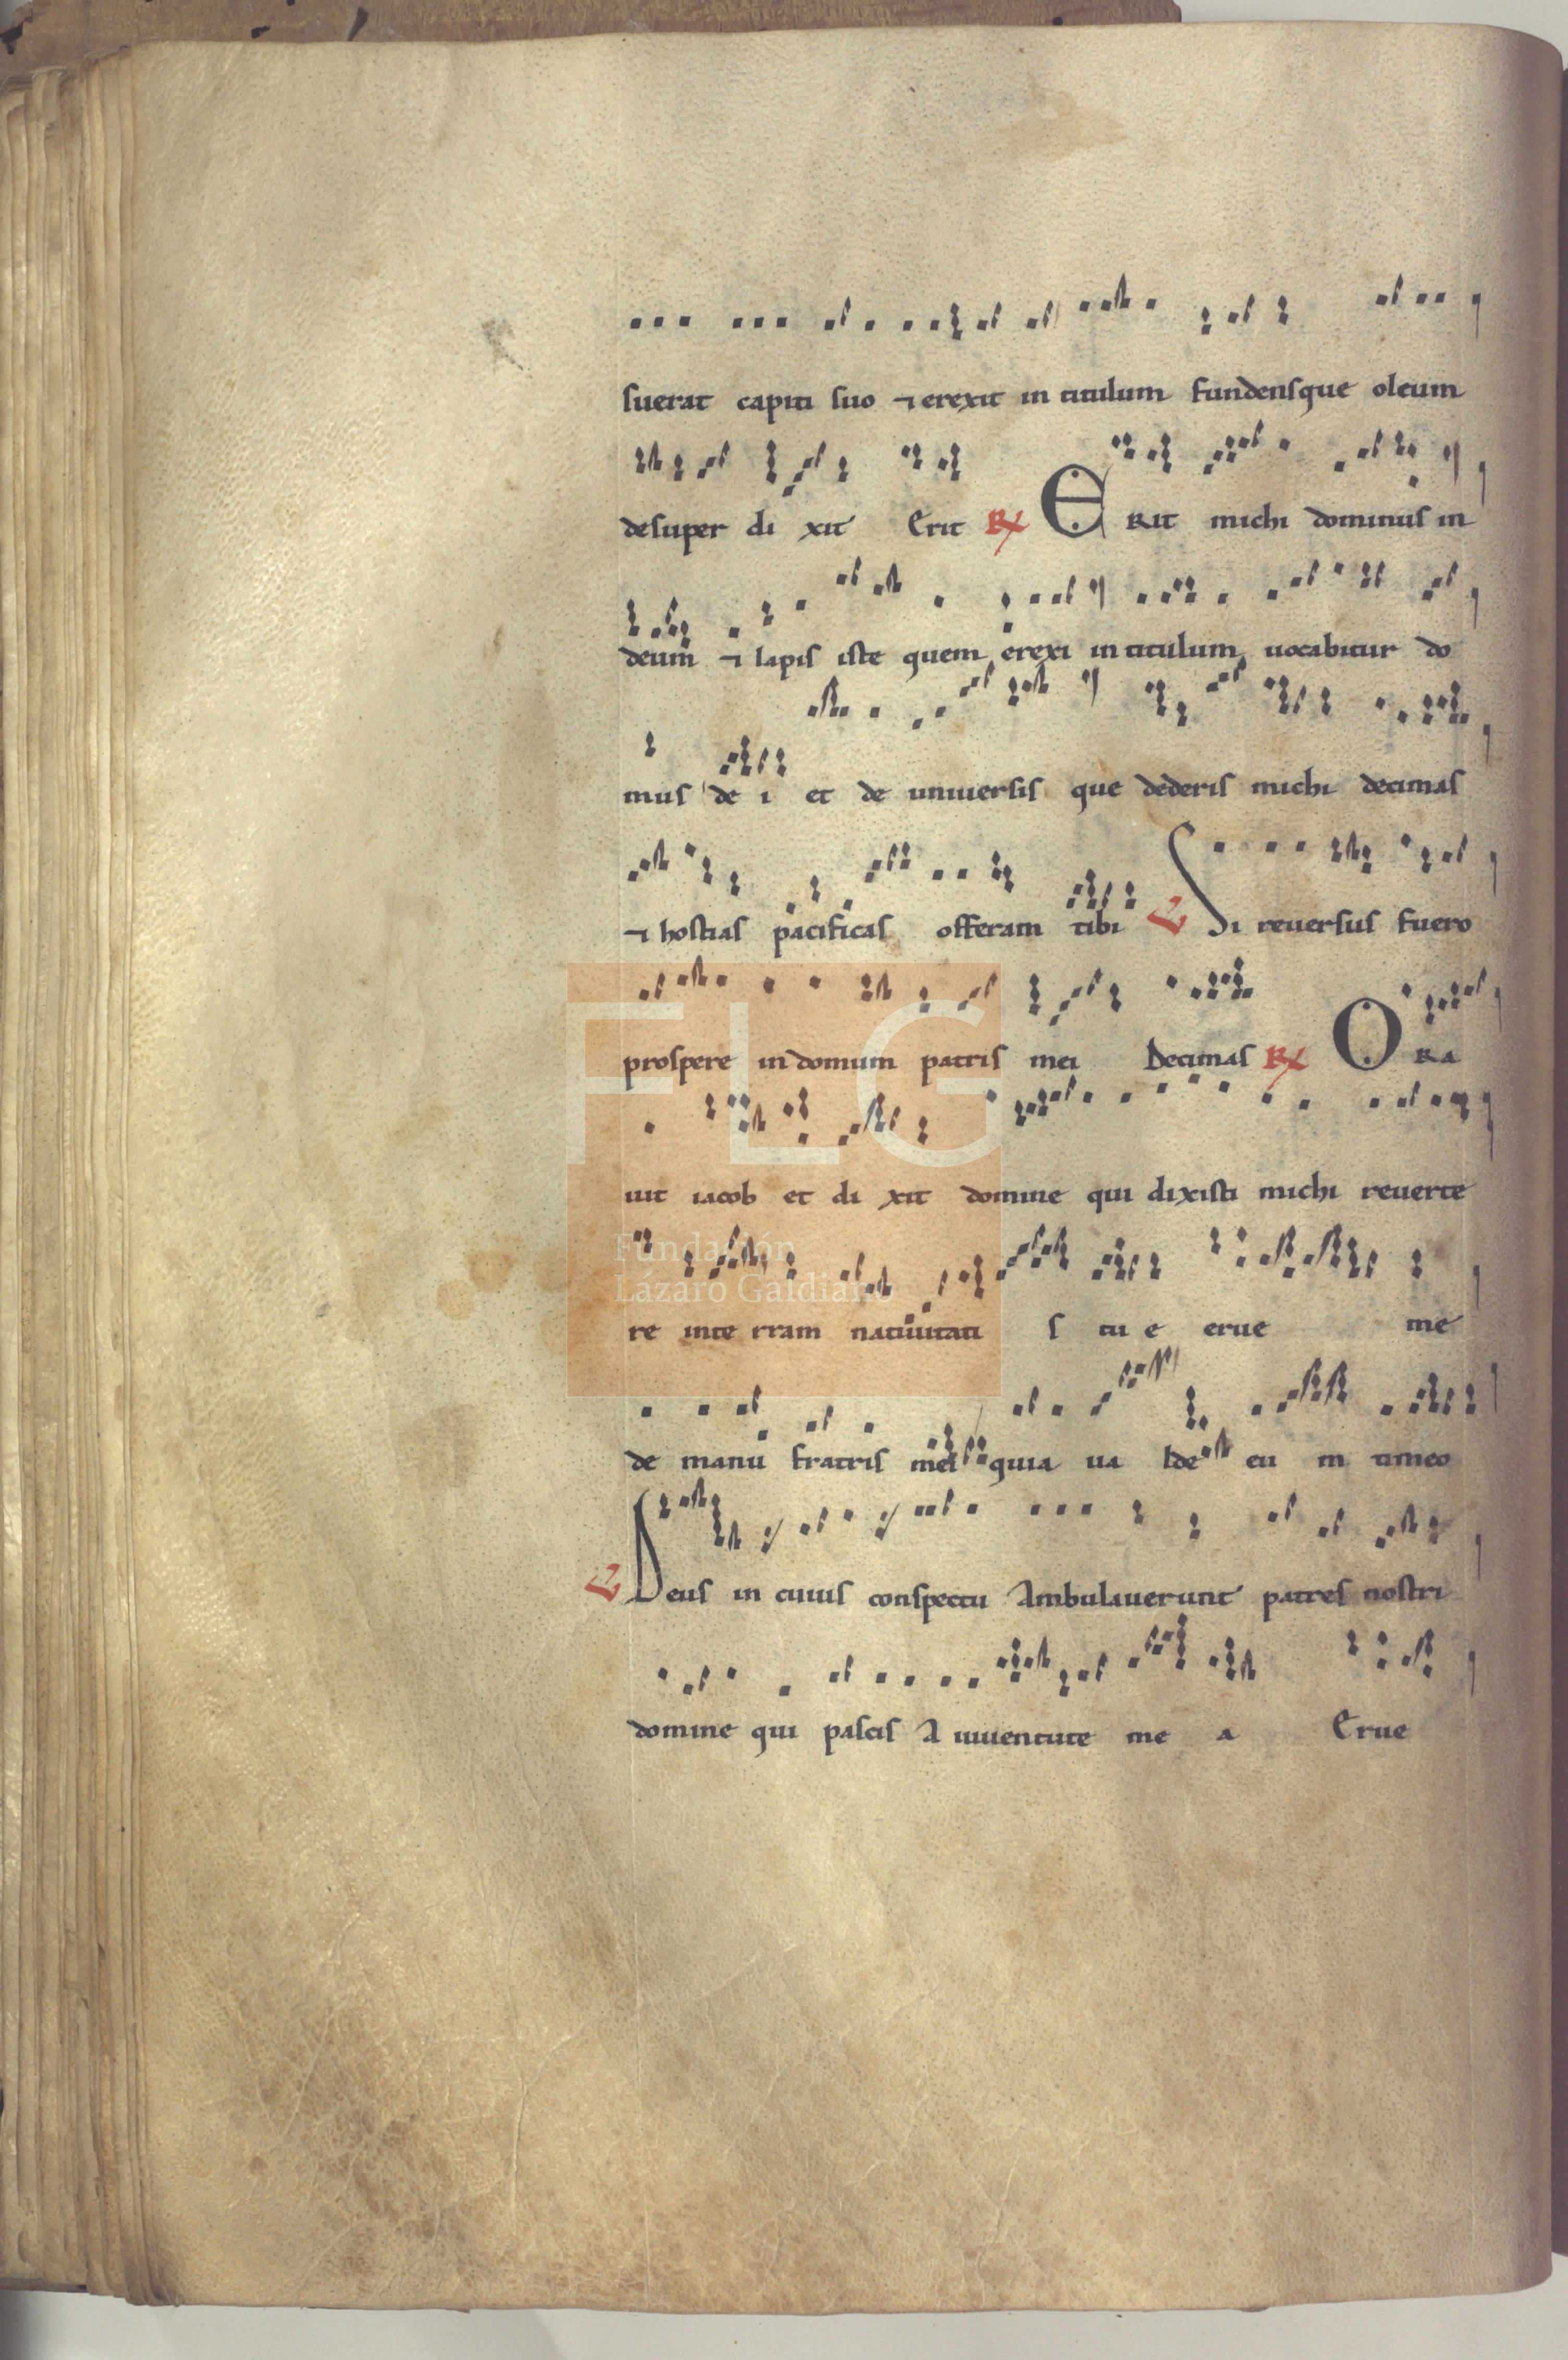 suerat capiti suo ⁊ erexit in titulum fundensque oleum
desuper di xit Erit R̸ E RIT michi dominus in
deum ⁊ lapis iste quem erexi in titulum uocabitur do
mus de i et de uniuersis que dederis michi decimas
⁊ hostias pacificas offeram tibi V Si reuersus fuero
prospere in domum patris mei Decimas R̸ O RA
uit iacob et di xit domine qui dixisti michi reuerte
re inte rram natiuitati s tu e erue me
de manu fratris mei quia ua lde eu m timeo
V Deus in cuius conspectu Ambulauerunt patres nostri
domine qui pascis A iuuentute me a Erue
FLG
Fundación
Lázaro Galdiano